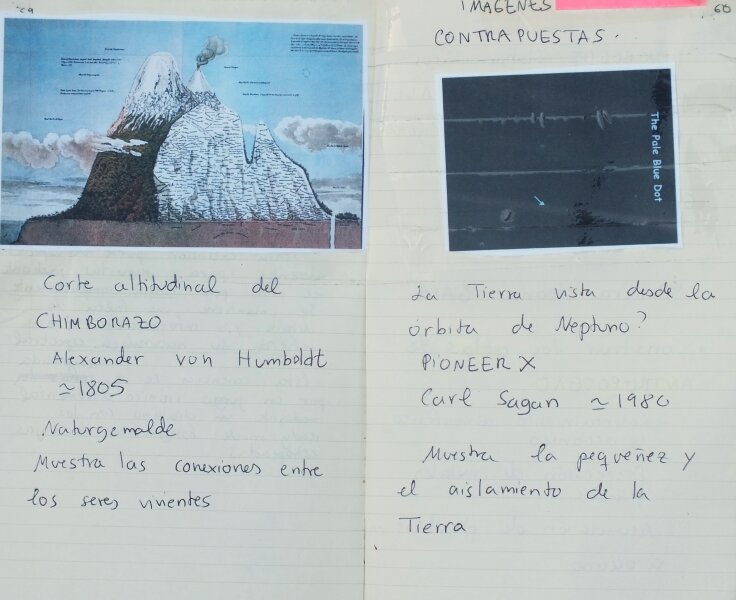 Corte altitudinal del
CHIMBORAZO
Alexander von Humboldt
≃1805
Naturgemalde
Muestra las conexiones entre
los seres vivientes
60
IMAGENES
CONTRAPUESTAS.
The Pale Blue Dot
La Tierra vista desde la
órbita de Neptuno?
PiONEER X
Carl Sagan ≃1980
Muestra la pequeñez y
el aislamiento de la
Tierra